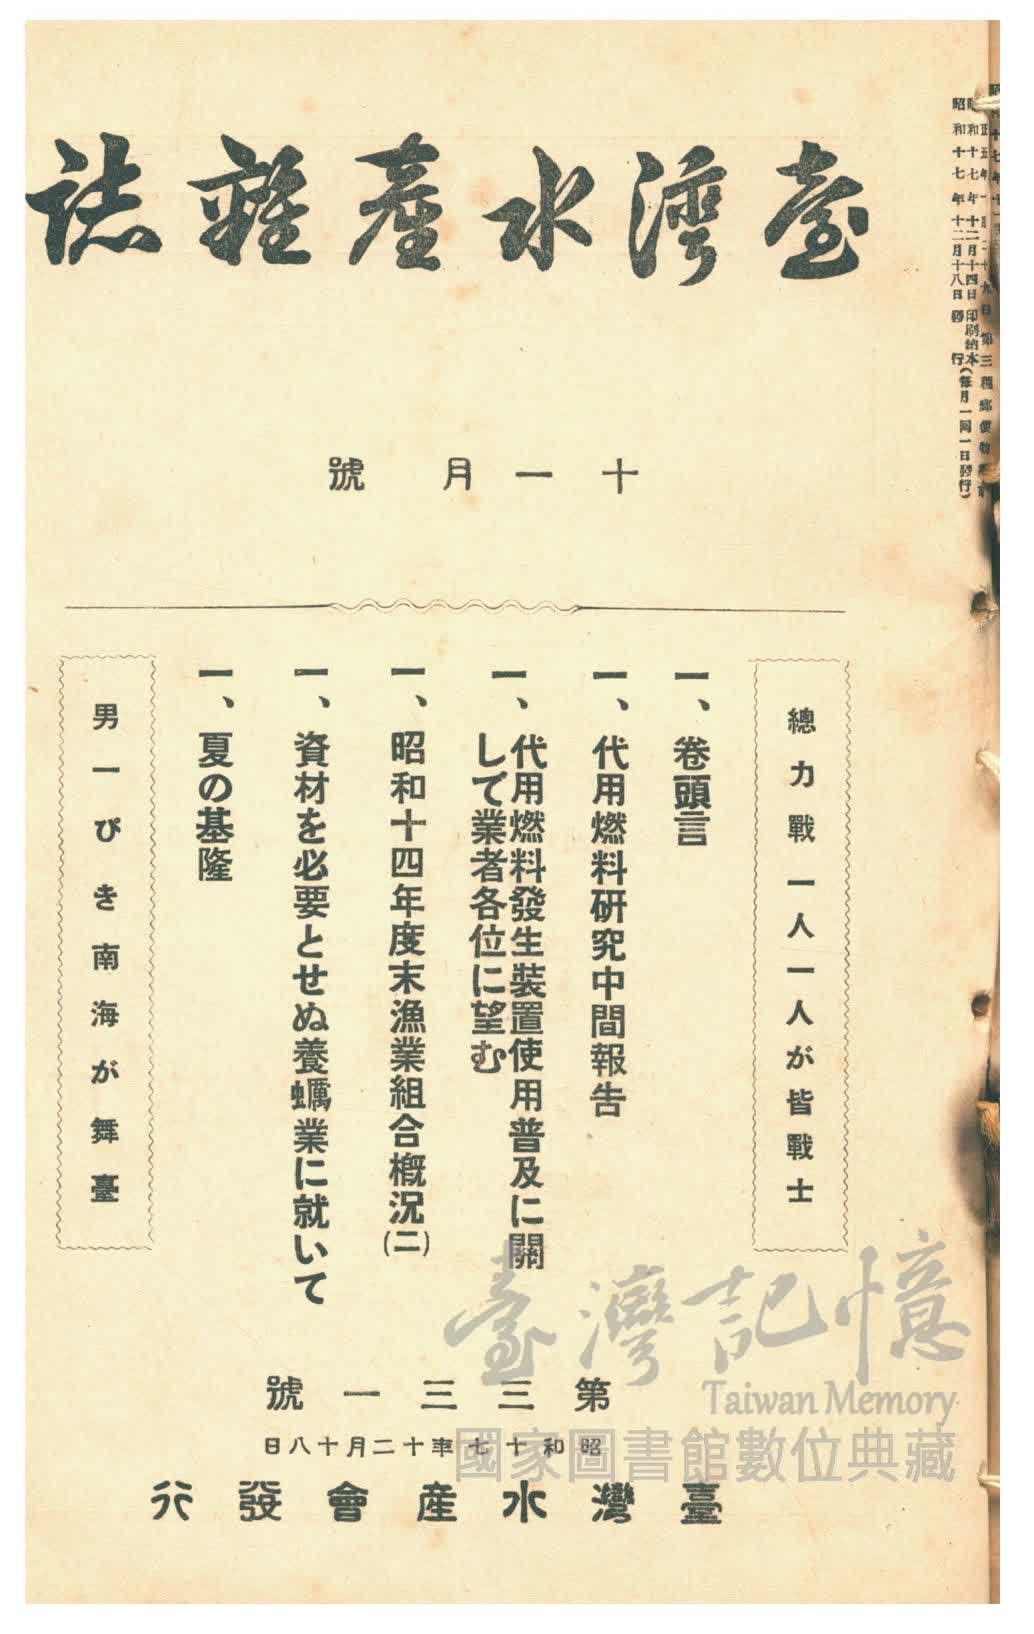 臺灣水產雜誌
十一月號
昭和十七年十二月十四日印刷納本
昭和十七年十二月十八日發行
(每月一回一日發行)
總力戰一人一人が皆戰士
一、卷頭言
一、代用燃料研究中間報告
一、代用燃料發生裝置使用普及に關
して業者各位に望む
一、昭和十四年度末漁業組合概況(二)
一、資材を必要とせぬ養蠣業に就いて
一、夏の基隆
男一ぴき南海が舞臺
第三三一號
昭和十七年十二月十八日
臺灣水產會發行
臺灣記憶
Taiwan Memory
國家圖書館數位典藏